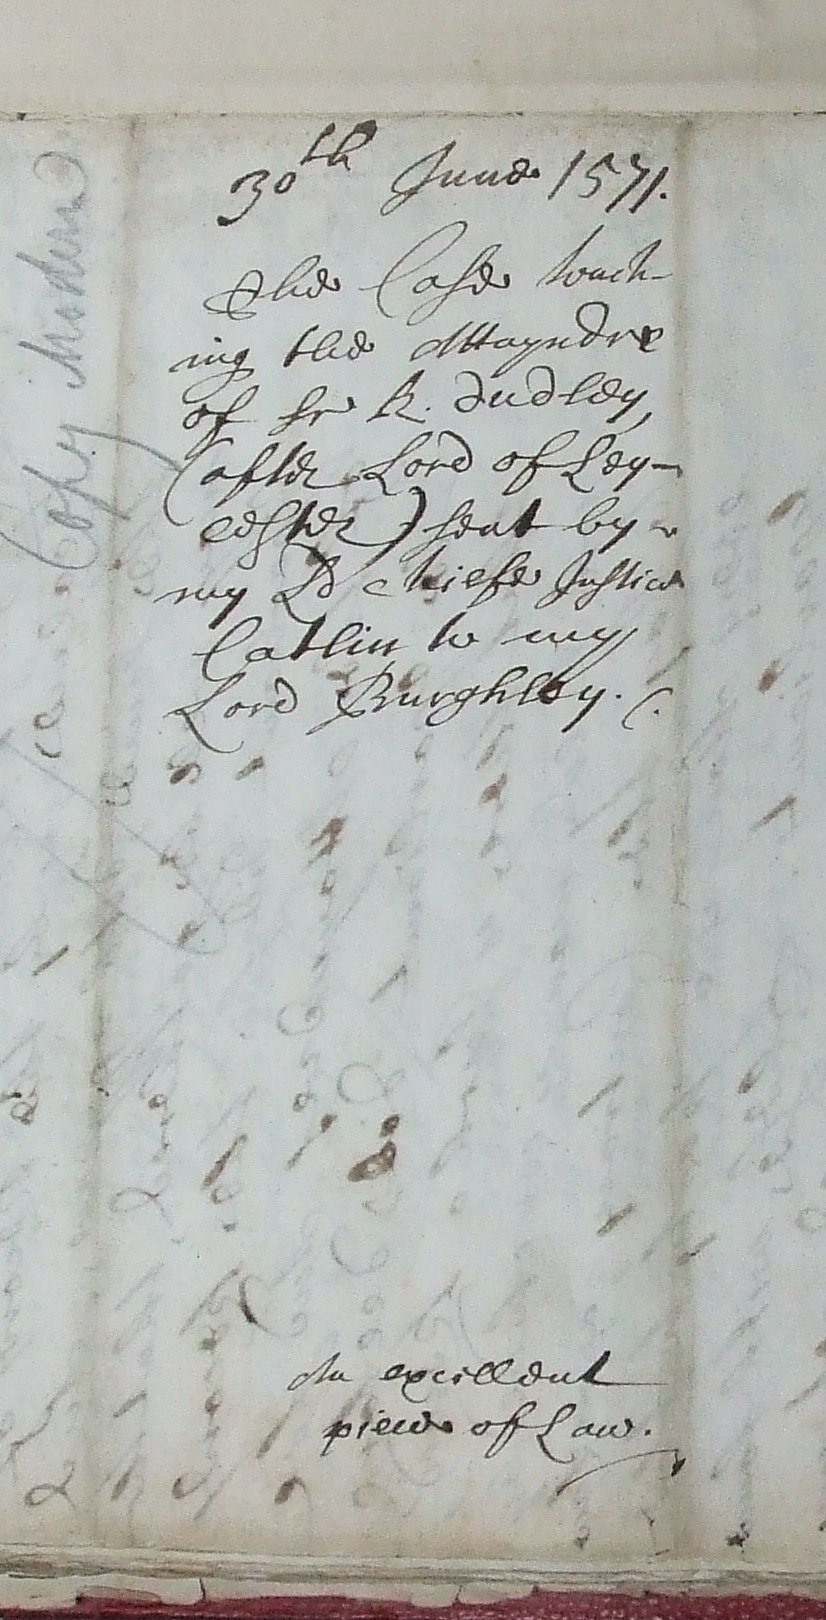 30th June 1571.
The Case touch-
ing the Attayndre
of Sr R. Dudley,
(after Lord of Ley-
cester) sent by
my Ld chiefe Justice
Catlin to my
Lord Burghley. (.
An excellent
piece of Law.
Copy Modern